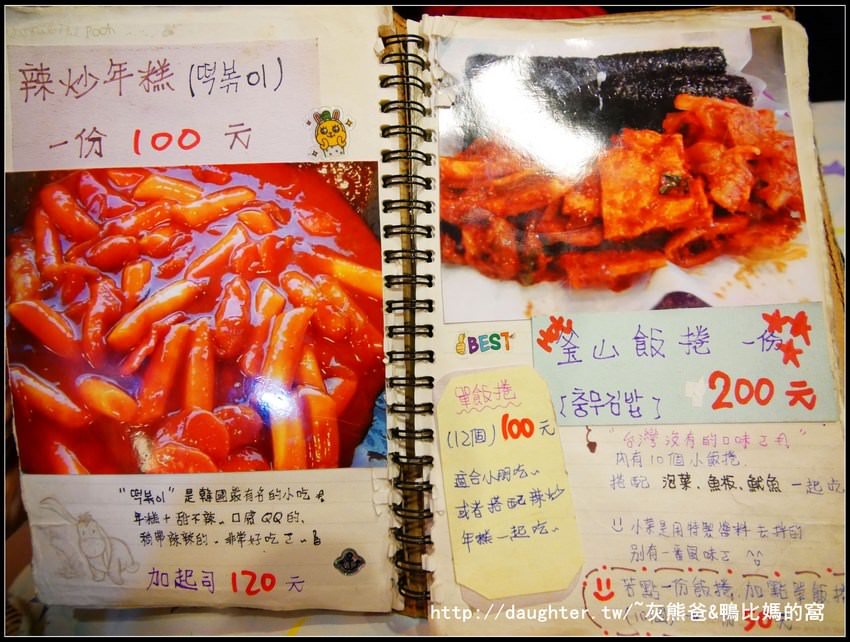 辣炒年糕(떡볶이)
一份 100 元
"떡볶이" 是韓國最有名的小吃
年糕+甜不辣、口感QQ的、
稍帶辣辣的、非常好吃ㄛ~
加起司 120 元
BEST
釜山飯捲 一份
[충무김밥] 200 元
單飯捲
(12個) 100元
適合小朋吃~
或者搭配辣炒
年糕一起吃~
"台灣沒有的口味ㄛ!!"
內有10個小飯捲、
搭配 泡菜、魚板、魷魚 一起吃
小菜是用特製醬料去拌的
別有一番風味ㄛ ^^
若點一份飯捲、加點單飯捲
http://daughter.tw/~灰熊爸&鴨比媽的窩